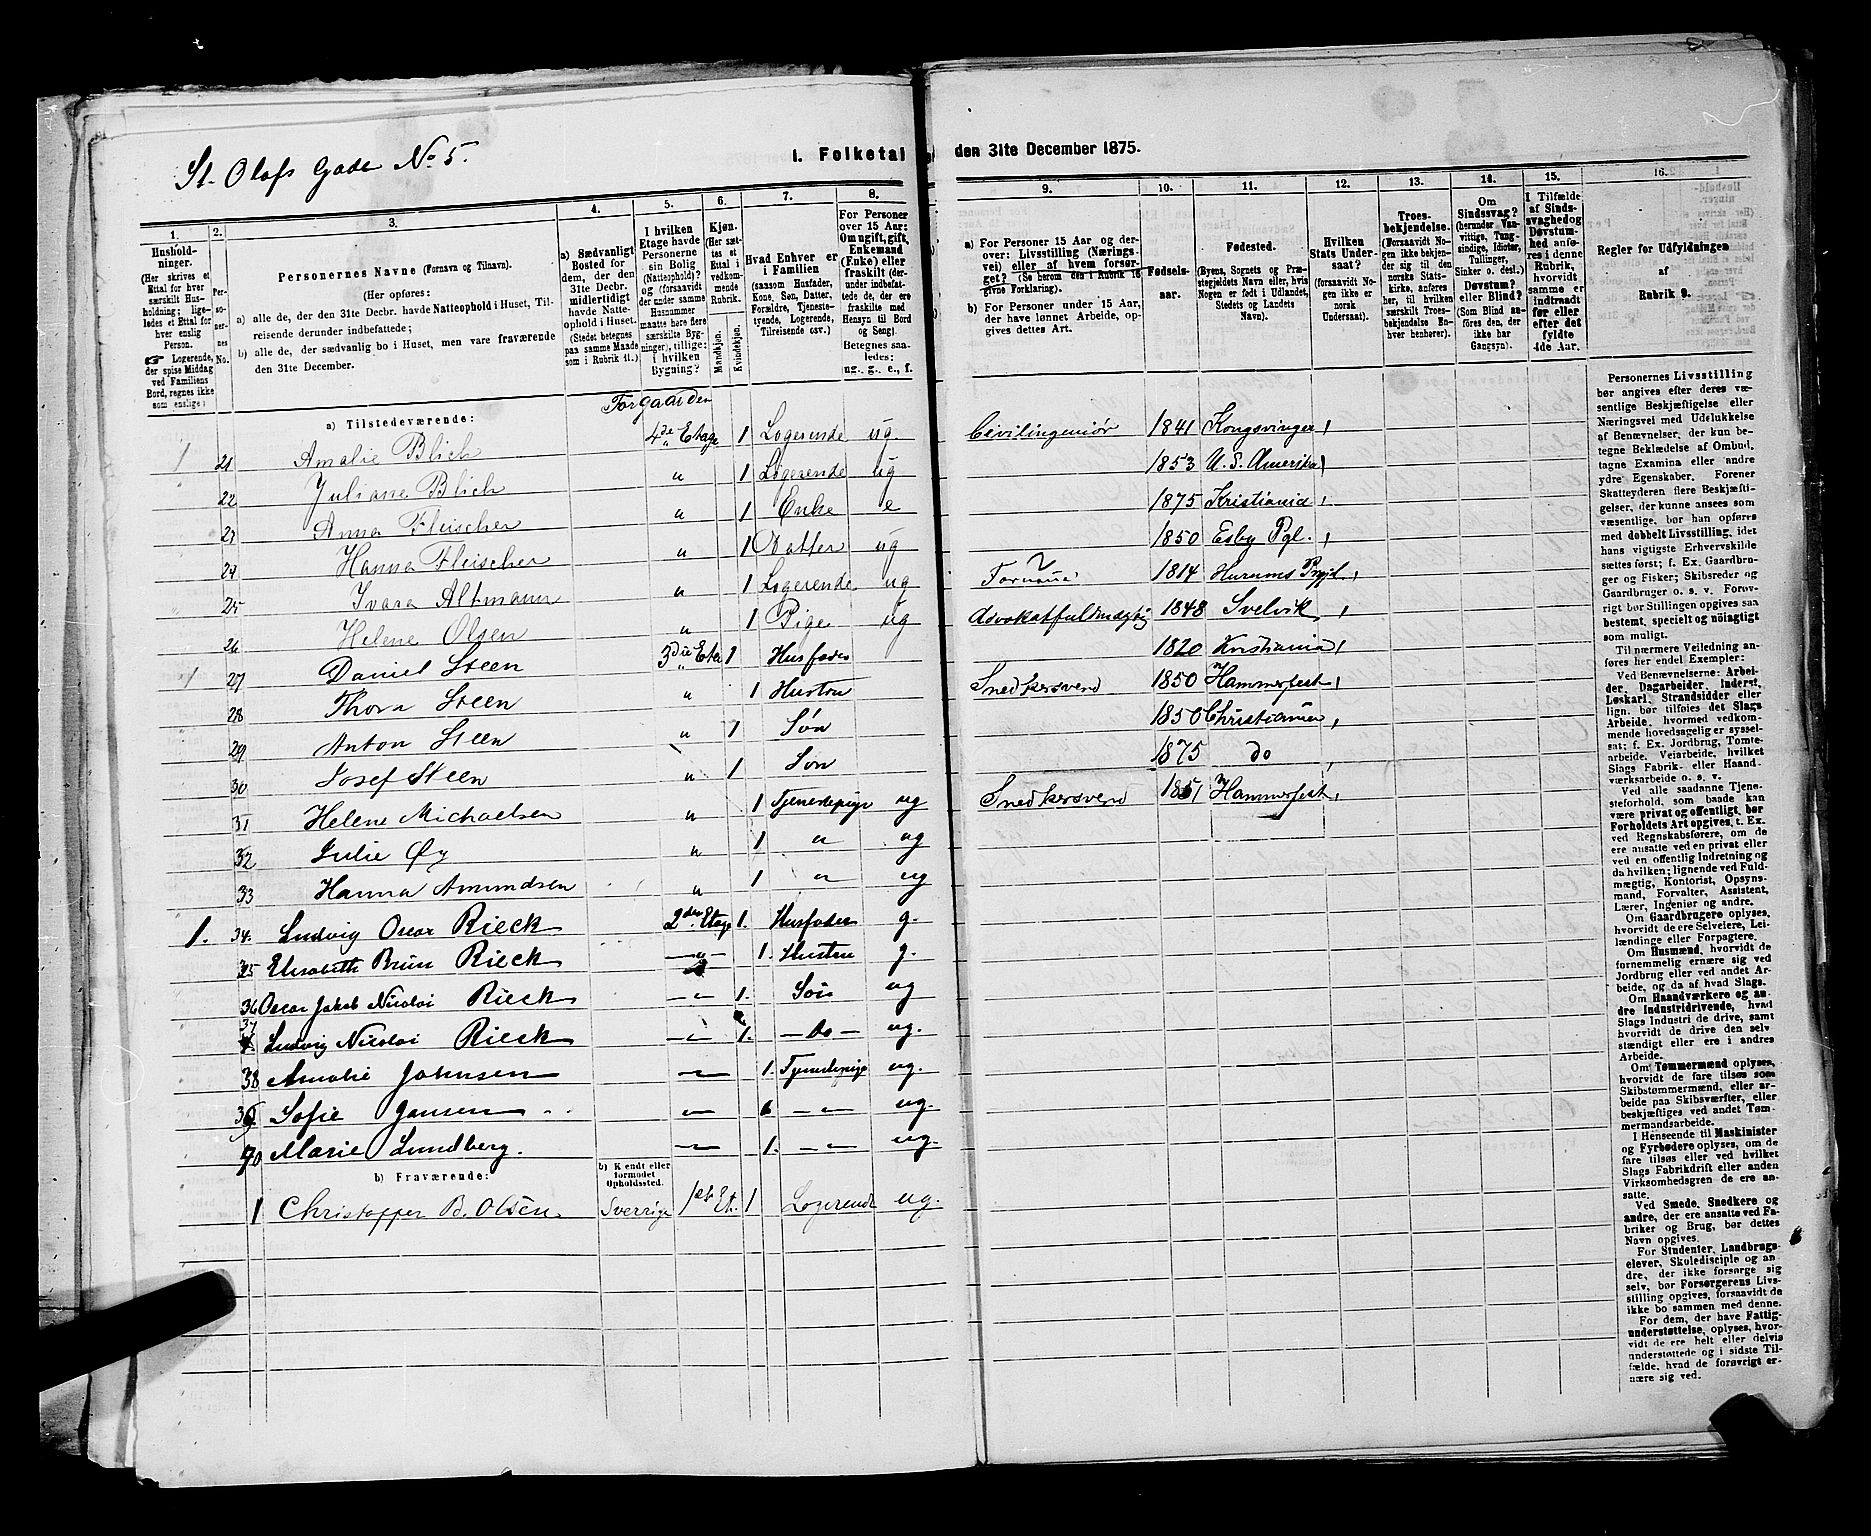 St. Olafs Gade No 5.
1. Folketal
den 31te December 1875.
1.
Hushold-
ninger.
(Her skrives et
Ettal for hver
særskilt Hus-
holdning; lige-
ledes et Ettal for
hver enslig
Person.
☞ Logerende,
der spise Middag
ved Familiens
Bord, regnes ikke
som enslige.)
2.
No.
3.
Personernes Navne (Fornavn og Tilnavn).
(Her opføres:
a) alle, de, der den 31te Decbr. havde Natteophold i Huset, Til-
reisende derunder indbefattede;
b) alle, de, der sædvanlig bo i Huset, men vare fraværende
den 31te December.
4.
a) Sædvanligt
Bosted for
dem, der den
31te Decbr.
midlertidigt
havde Natte-
ophold i Huset.
(Stedet betegnes
paa samme Maade
som i Rubrik 11.)
5.
I hvilken
Etage havde
Personerne
sin Bolig
(Natteophold)?
og (forsaavidt
der under samme
Husnummer
maatte høre flere
særskilte Byg-
ninger), tillige:
i hvilken
Bygning?
6.
Kjøn.
(Her sæt-
tes et
Ettal i
vedkom-
mende
Rubrik.)
Mandkjøn.
Kvindekjøn.
7.
Hvad Enhver er
i Familien
(saasom Husfader,
Kone, Søn, Datter,
Forældre, Tjeneste-
tyende, Logerende,
Tilreisende osv.)
8.
For Personer
over 15 Aar:
Om ugift, gift,
Enkemand
(Enke) eller
fraskilt (der-
under indbefat-
tede de, der ere
fraskilte med
Hensyn til Bord
og Seng)
Betegnes saa-
ledes:
ug., g., e., f.
9.
a) For Personer 15 Aar og der-
over: Livsstilling (Nærings-
vei) eller af hvem forsør-
get? (Se herom des i Rubrik 16
givne Forklaring).
b) For Personer under 15 Aar,
der have lønnet Arbeide, op-
gives dettes Art.
10.
Fødsels-
aar.
11.
Fødested.
(Byens, Sognets og Præ-
stegjeldets Navn eller, hvis
Nogen er født i Udlandet,
Stedets og Landets
Navn).
12.
Hvilken
Stats Under-
saat?
(forsaavidt No-
gen ikke er
norsk
Undersaat).
13.
Troes-
bekjendelse.
(Forsaavidt No-
gen ikke bekjen-
der sig til den
norske Stats-
kirke, anføres
her, til hvilken
særskilt Troes-
bekjendelse En-
hver henhører).
14.
Om
Sindssvag?
(herunder Van-
vittige, Tung-
sindige, Idioter,
Tullinger,
Sinker o. desl.)
Døvstum?
eller Blind?
(Som Blind an-
føres den, der
ikke har
Gangsyn).
15.
I Tilfælde
af Sinds-
svaghed og
Døvstum-
hed anfø-
res i denne
Rubrik,
hvorvidt
samme er
indtraadt
før eller
efter det
fyldte
4de Aar.
16.
Regler for Udfyldningen
af
Rubrik 9.
a) Tilstedeværende: Forgaarden
1 21 Amalie Blich 4de Etage 1 Logerende ug. Civilingeniør 1841 Kongsvinger
22 Juliane Blich " 1 Logerende ug 1853 U. S. Amerika
23 Anna Fleischer " 1 Enke e 1875 Kristiania
24 Hanna Fleischer " 1 Datter ug 1850 Esby Pgl.
25 Ivara Altmann " 1 Logerende ug 1814 Hurums Pgl
26 Helene Olsen " 1 Pige ug Advokatfuldmægtig 1848 Svelvik
1 27 Daniel Steen 3die Etage 1 Husfader 1820 Kristiania
28 Thora Steen " 1 Hustru Snedkersvend 1850 Hammerfest
29 Anton Steen " 1 Søn 1850 Christiania
30 Josef Steen " 1 Søn 1875 do
31 Helene Michaelsen " 1 Tjenestepige ug Snedkersvend 1851 Hammerfest
32 Julie Øy " 1 " ug
33 Hanna Amundsen " 1 " ug
1. 34. Ludvig Oscar Rieck 2den Etage 1. Husfader g.
35 Elisabeth Brun Rieck — " — 1. Hustru g.
36 Oscar Jakob Nicolai Rieck — " — 1. Søn ug
37 Ludvig Nicolai Rieck — " — 1. — Do — ug.
38 Amalie Johnsen — " — 1. Tjenestepige ug.
39. Sofie Jansen — " — 1 — " — ug.
40 Marie Lundberg. — " — 1. — " — ug.
b) Fraværende:
b) Kjendt eller
formodet
Opholdssted.
1 Christopher B. Olsen Sverrige 1ste Et. 1 Logerende ug.
Personernes Livsstilling
bør angives efter deres væ-
sentlige Beskjæftigelse eller
Næringsvei med Udelukkelse
af Benævnelser, der kun be-
tegne Beklædelse af Ombud,
tagne Examina eller andre
ydre Egenskaber. Forener
Skatteyderen flere Beskjæfti-
gelser, der kunne ansees som
væsentlige, bør han opføres
med dobbelt Livsstilling, idet
hans vigtigste Erhvervskilde
sættes først; f. Ex. Gaardbru-
ger og Fisker; Skibsreder og
Gaardbruger o. s. v. Forøv-
rigt bør Stillingen opgives saa
bestemt, specielt og nøiagtigt
som muligt.
Til nærmere Veiledning an-
føres her endel Exempler:
Ved Benævnelserne: Arbei-
der, Dagarbeider, Inderst,
Løskarl, Strandsidder eller
lign. bør tilføies det Slags
Arbeide, hvormed vedkom-
mende hovedsagelig er syssel-
sat; f. Ex. Jordbrug, Tomte-
arbeide, Veiarbeide, hvilket
Slags Fabrik- eller Haand-
værksarbeide o. s. v.
Ved alle saadanne Tjene-
steforhold, som baade kan
være privat og offentligt, bør
Forholdets Art opgives, t. Ex.
ved Regnskabsførere, om de
ere ansatte ved en privat eller
ved en offentlig Indretning og
da hvilken; lignende ved Fuld-
mægtig, Kontorist, Opsyns-
mand, Forvalter, Assistent,
Lærer, Ingeniør og andre.
Om Gaardbrugere oplyses,
hvorvidt de ere Selveiere, Lei-
lændinge eller Forpagtere.
Om Husmænd, hvorvidt de
fornemmelig ernære sig ved
Jordbrug eller ved andet Ar-
beide, og da af hvad Slags.
Om Haandværkere og an-
dre Industridrivende, hvad
Slags Industri de drive, samt
hvorvidt de drive den selv
stændigt eller ere i andres
Arbeide.
Om Tømmermænd oplyses,
hvorvidt de fare tilsøs som
Skibstømmermænd, eller ar-
beide paa Skibsværfter, eller
beskjæftiges ved andet Tøm-
mermandsarbeide.
I Henseende til Maskinister
og Fyrbødere oplyses, om de
fare tilsøs eller ved hvilket
Slags Fabrikdrift eller anden
Virksomhedsgren de ere an-
satte.
Ved Smede, Snedkere og
andre, der ere ansatte ved Fa-
briker og Brug, bør dettes
Navn opgives.
For Studenter, Landbrugs-
elever, Skoledisciple og an-
dre, der ikke forsørge sig
selv, bør Forsørgerens Livs-
stilling opgives, forsaavidt de
ikke bo sammen med denne.
For dem, der have Fattig-
understøttelse, oplyses, hvor-
vidt de ere helt eller delvis
understøttede og i sidste Til-
fælde, hvad de forøvrigt er-
nære sig ved.